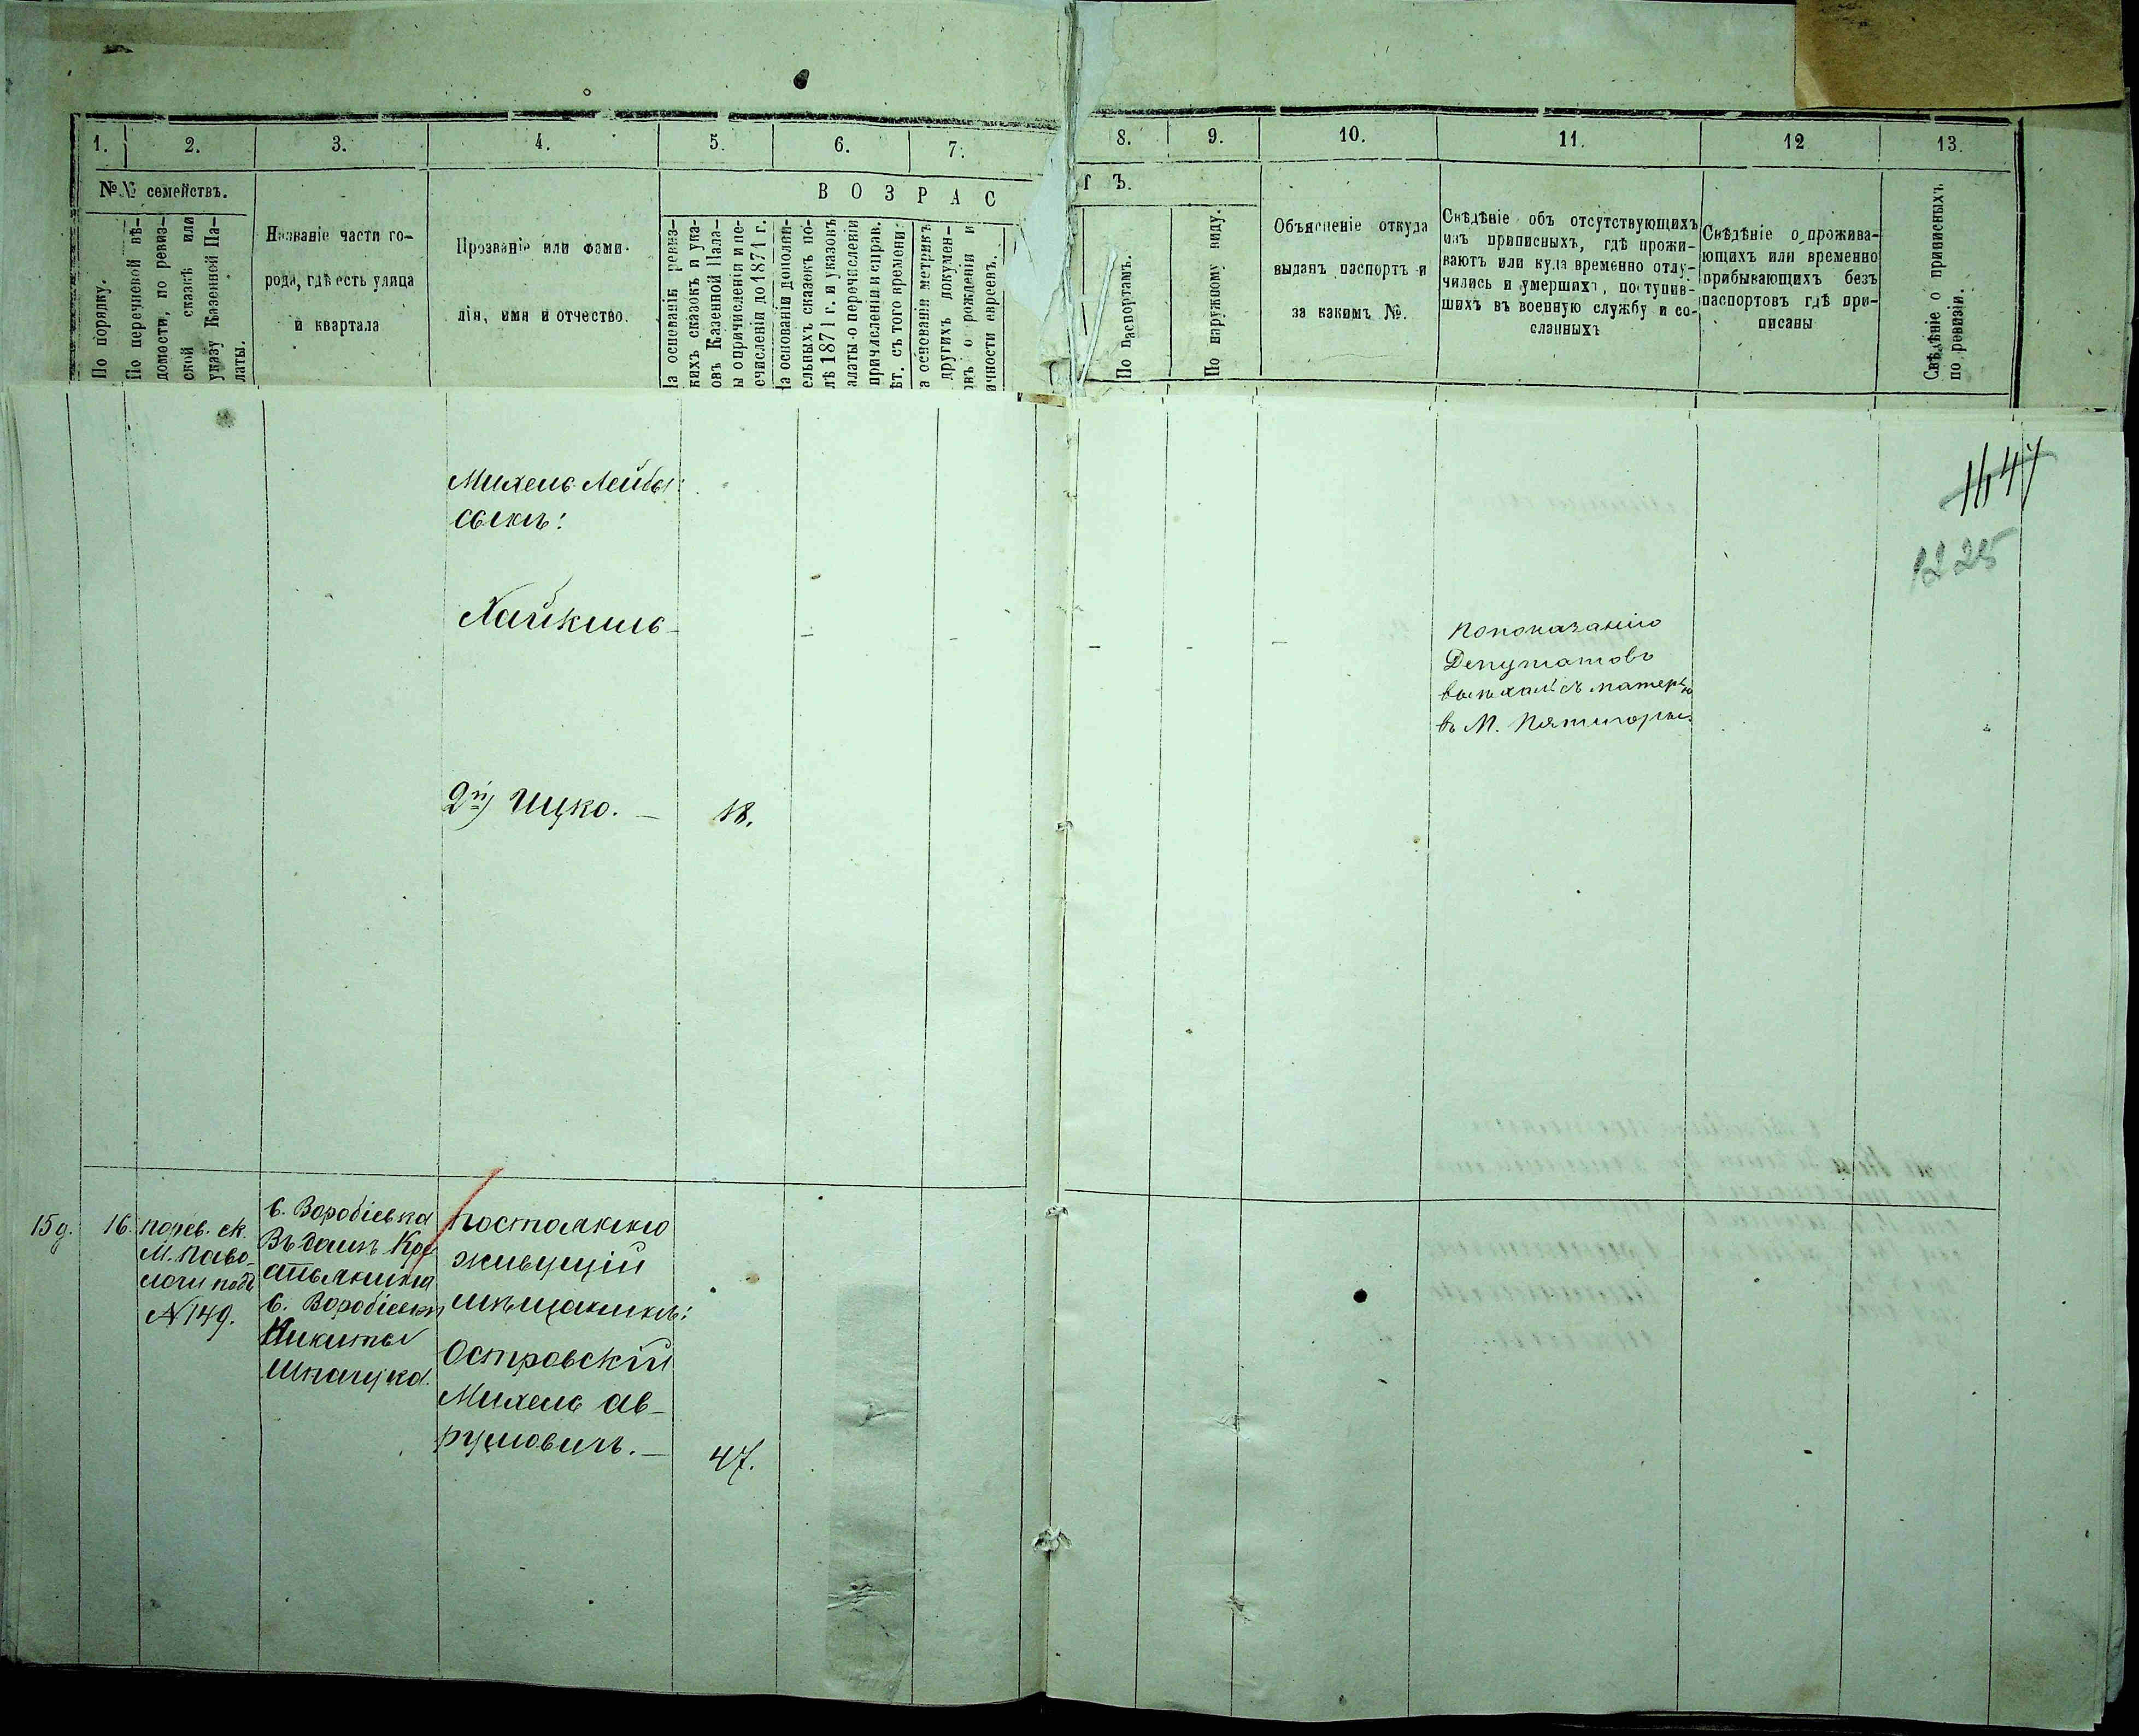 1. 2. 3. 4. 5. 6. 7. 8. 9. 10. 11. 12 13.
№№ семействъ.
По порядку.
По перечневой вѣ-
домости, по ревиз-
ской сказкѣ или
указу Казенной Па-
латы.
Названіе части го-
рода, гдѣ есть улица
и квартала
Прозваніе или фами-
лія, имя и отчество.
ВОЗРАС
Т Ъ.
На основаніи ревиз-
скихъ сказокъ и ука-
зовъ Казенной Пала-
ы о причисленіи и пе-
речисленіи до 1871 г.
На основаніи дополни-
ельныхъ сказокъ по-
лѣ 1871 г. и указовъ
алаты о перечисленіи
причисленіи и справ.
ѣт. съ того времени
а основаніи метрикъ
другихъ докумен-
овъ о рожденіи и
ичности евреевъ.
По паспортамъ.
По наружному виду.
Объясненіе откуда
выданъ паспортъ и
за какимъ №.
Свѣдѣніе объ отсутствующихъ
изъ приписныхъ, гдѣ прожи-
ваютъ или куда временно отлу-
чились и умершихъ, поступив-
шихъ въ военную службу и со-
сланныхъ
Свѣдѣніе о прожива-
ющихъ или временно
прибывающихъ безъ
паспортовъ гдѣ при-
писаны
Свѣдѣніе о приписныхъ
по ревизіи.
1225
Михель Лейбы:
сынъ:
Хайкель -
По показанію
Депутатовъ
выѣхалъ съ матерью
въ М. Пятигоры.
2й) Ицко. - 18.
15 д. 16. по рев. ск.
М. Паво-
лочи подъ
№ 149.
с. Воробіевка
Въ домѣ Кре
стьянина
с. Воробіевки
Никиты
Шпачука.
постоянно
живущій
мѣщанинъ:
Островскій
Михель Ав-
румовичъ. - 47.